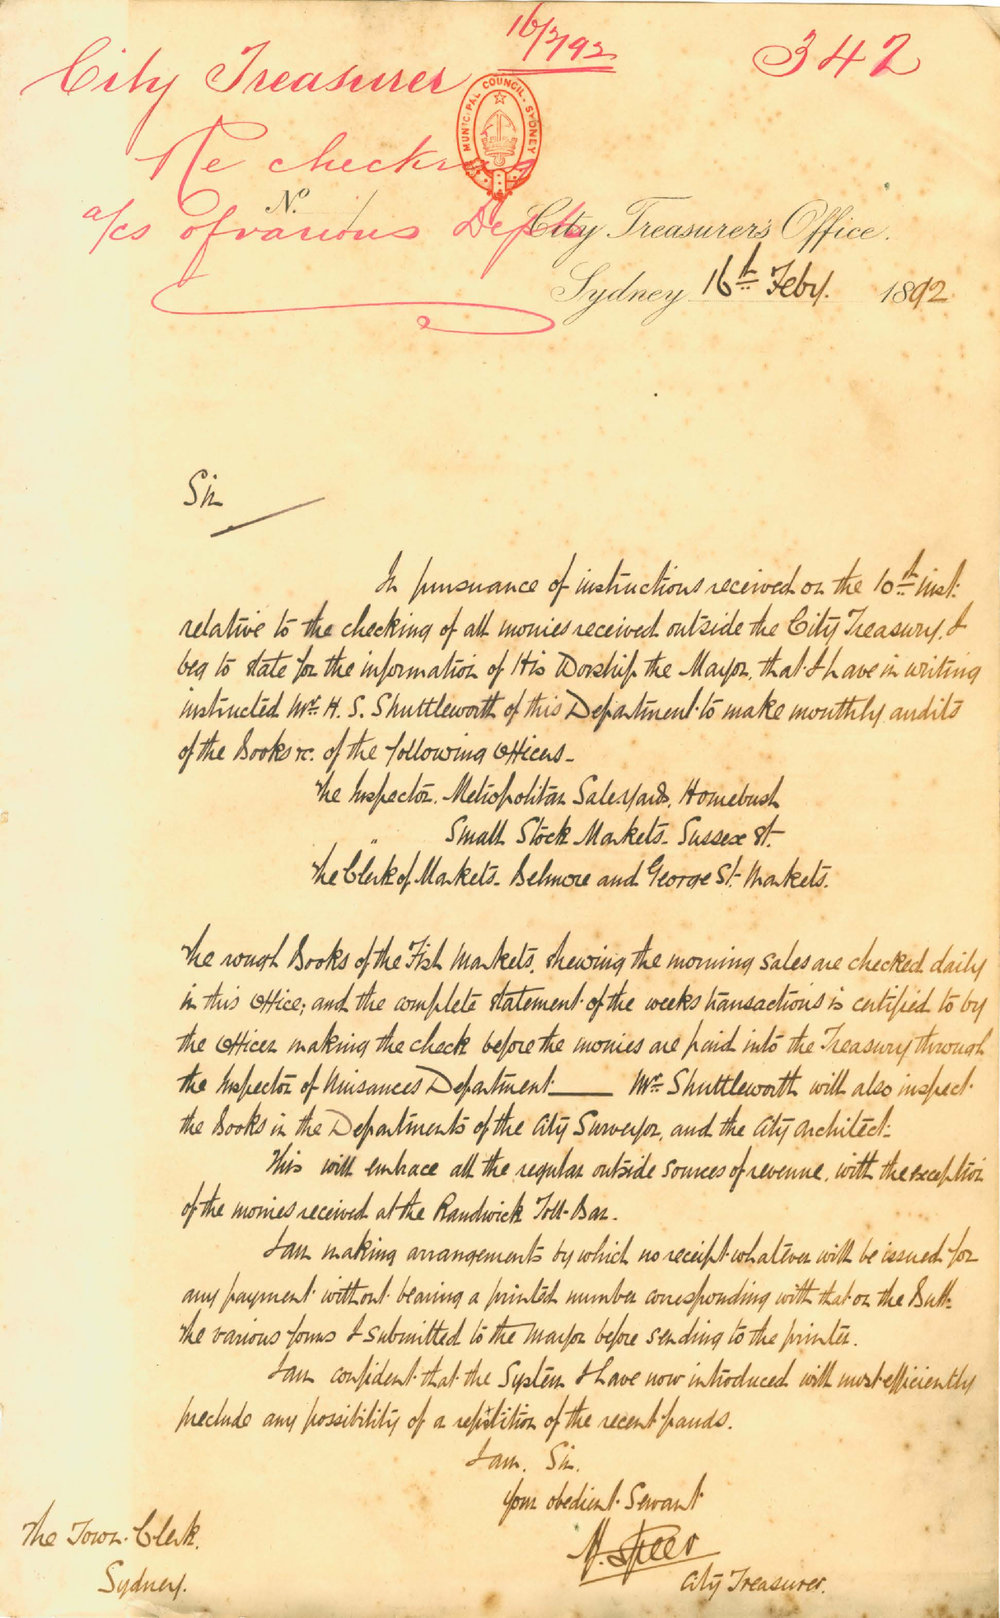 16/2/92
342
City Treasurer
MUNICIPAL COUNCIL. SYDNEY
Re checking
a/cs of various Depts
No.
City Treasurer's Office.
Sydney 16th Feby. 1892
Sir
In pursuance of instructions received on the 10th inst.
relative to the checking of all monies received outside the City Treasury, I
beg to state for the information of His Worship the Mayor, that I have in writing
instructed Mr. H. S. Shuttleworth of this Department to make monthly audits
of the Books &c. of the following Officers -
The Inspector, Metropolitan Saleyards, Homebush
" Small Stock Markets - Sussex St.
The Clerk of Markets - Belmore and George St. Markets.
The rough Books of the Fish Markets, shewing the morning sales are checked daily
in this Office; and the complete statement of the weeks transactions is certified to by
the Officer making the check before the monies are paid into the Treasury through
the Inspector of Nuisances Department. —— Mr. Shuttleworth will also inspect
the Books in the Departments of the City Surveyor, and the City Architect.
This will embrace all the regular outside sources of revenue, with the exception
of the monies received at the Randwick Toll-Bar.
I am making arrangements by which no receipt whatever will be issued for
any payment without bearing a printed number corresponding with that on the Butt.
The various forms I submitted to the Mayor before sending to the printer.
I am confident that the System I have now introduced will most efficiently
preclude any possibility of a repetition of the recent frauds.
I am, Sir,
Your obedient Servant
City Treasurer.
The Town Clerk.
Sydney.